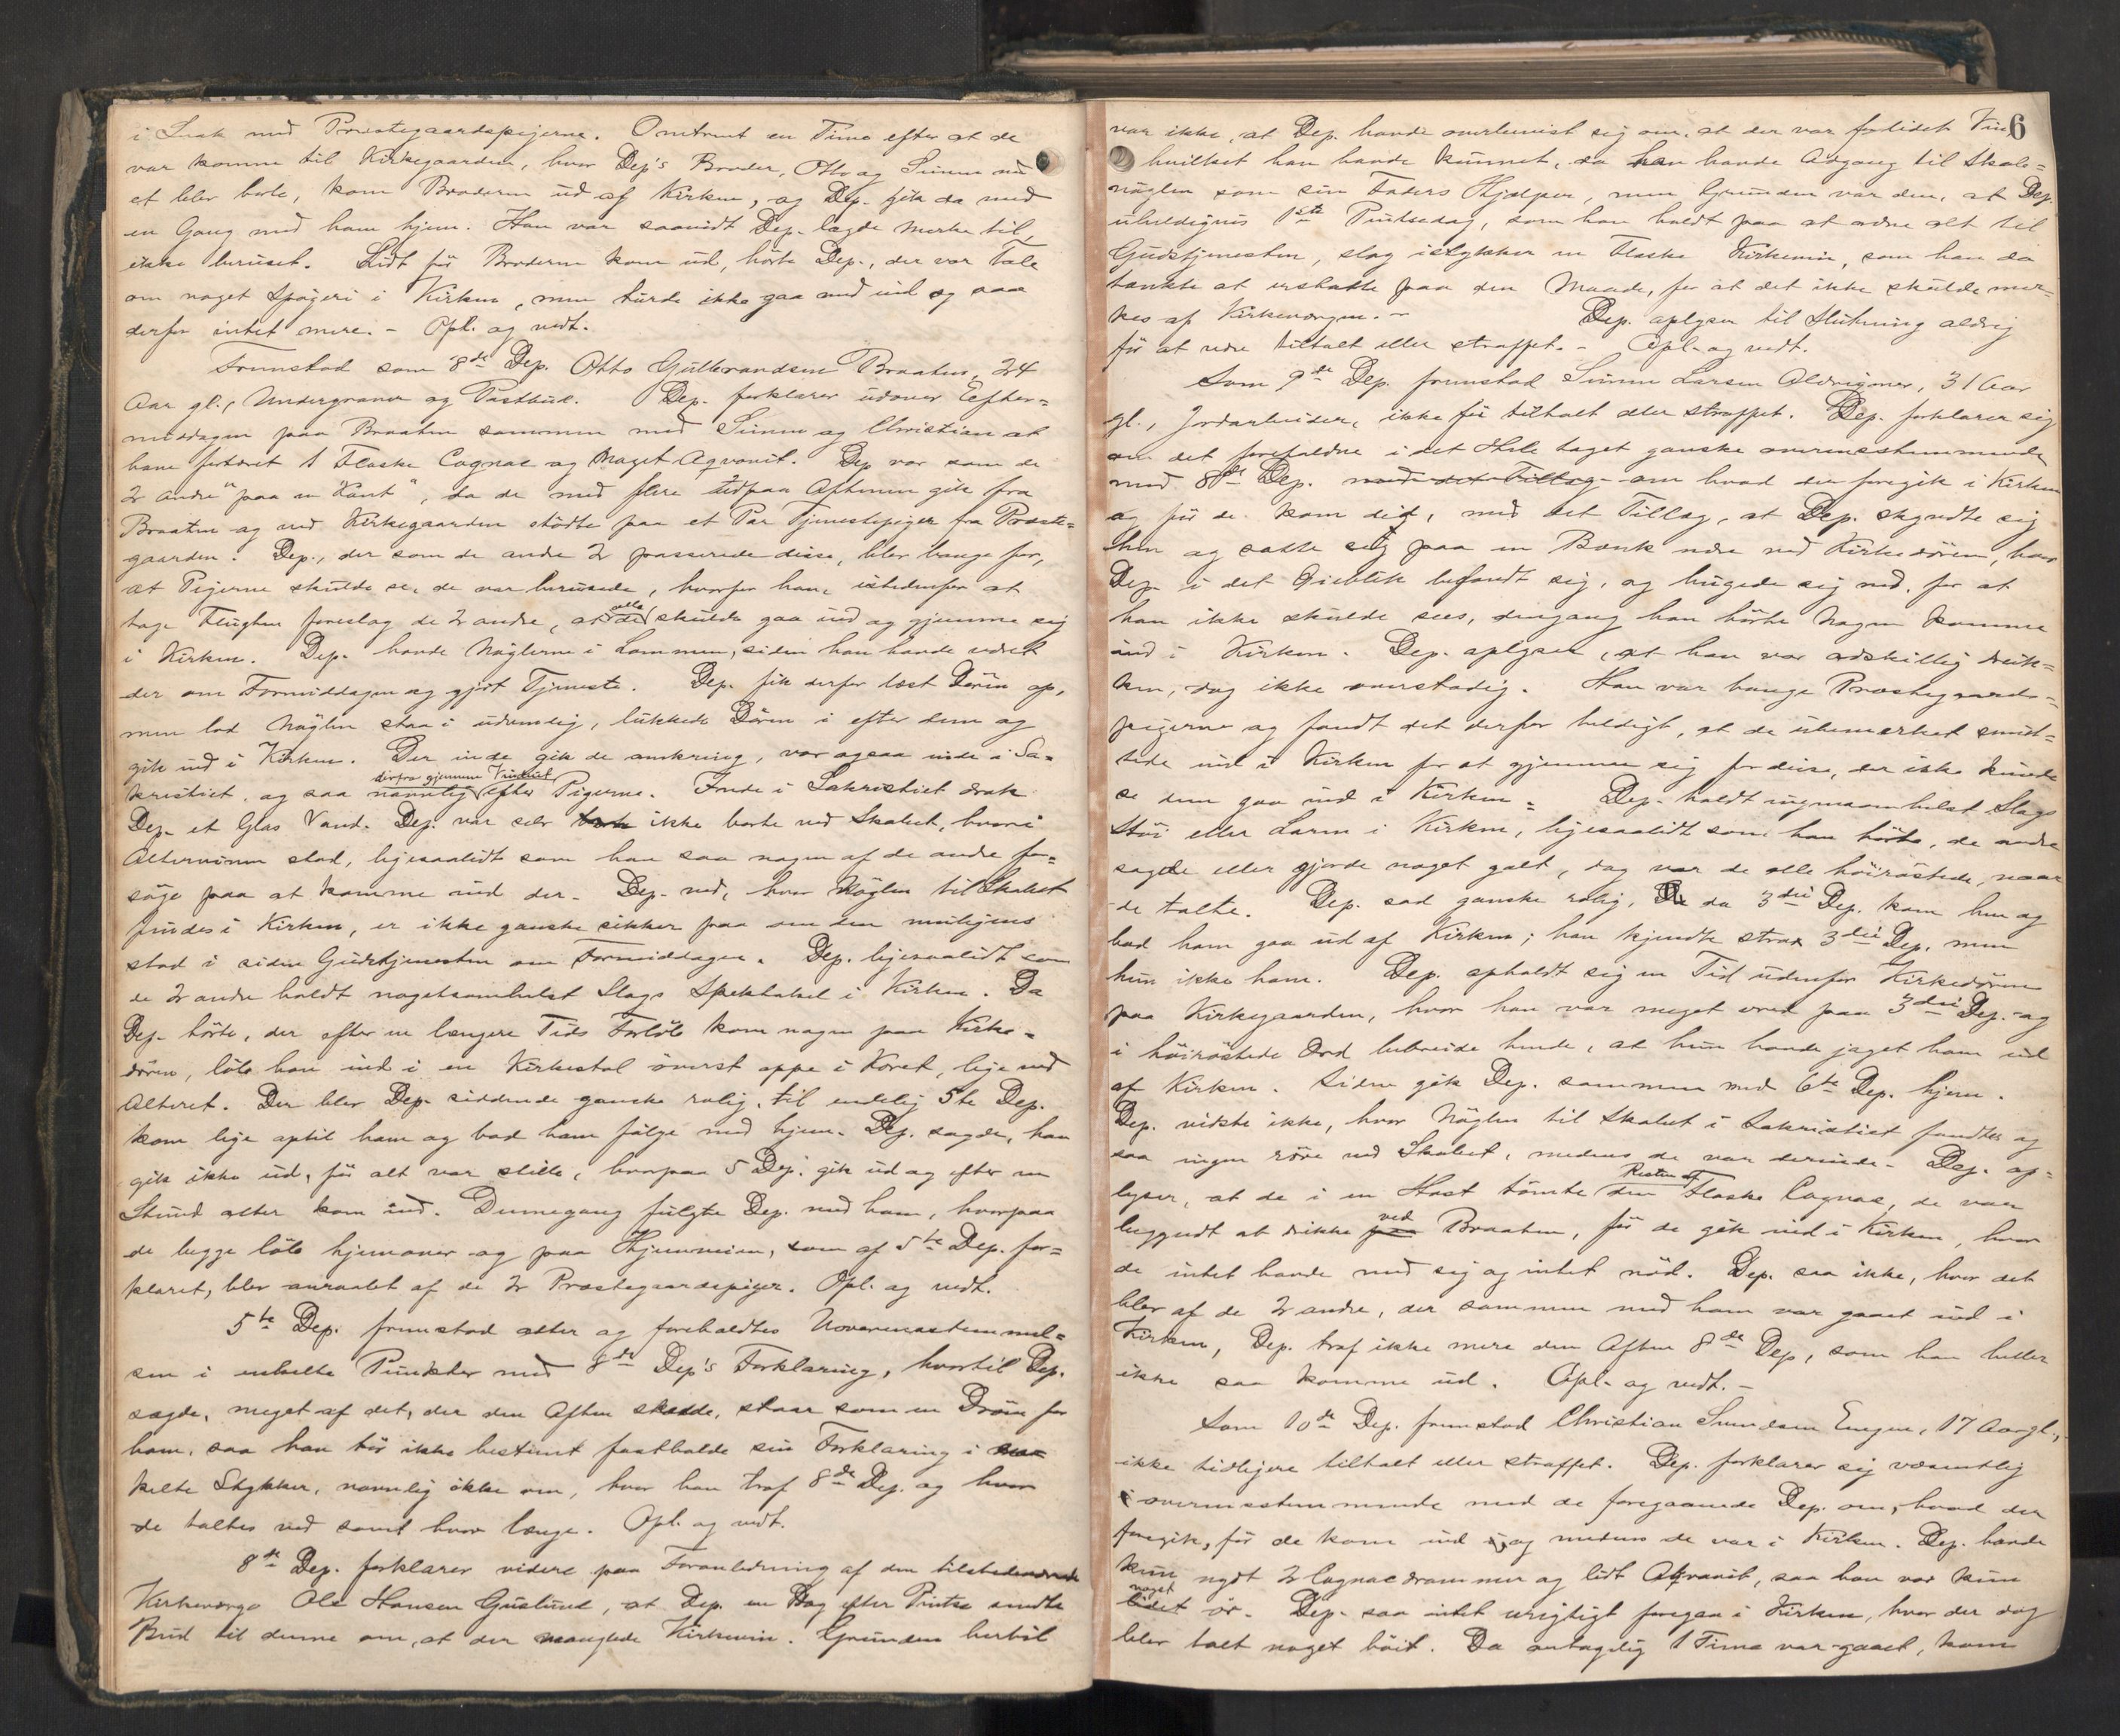 i Snak med Præstegaardspigerne. Omtrent en Time efter at de
var komne til Kirkegaarden, hvor Dep's Broder, Otto og Simen med
et blev borte, kom Broderen ud af Kirken, og Dep. gik da med
en Gang med ham hjem. Han var saavidt Dep. lagde Merke til,
ikke beruset. Lidt før Broderen kom ud, hørte Dep., der var Tale
om noget Spøgeri i Kirken, men turde ikke gaa med ind og saa
derfor intet mere. - Opl. og vedt.
Fremstod som 8de Dep. Otto Gulbrandsen Braaten, 24
Aar gl., Undergraver og Postbud. Dep. forklarer udover Efter=
middagen paa Braaten sammen med Simen og Christian at
have fortæret 1 Flaske Cognac og Noget Aqvavit. Dep var som de
2 andre "paa en Kant", da de med flere Ud paa Aftenen gik fra
Braaten og ved Kirkegaarden stødte paa et Par Tjenestepiger fra Præste=
gaarden. Dep., der som de andre 2 passerede disse, blev bange for,
at Pigerne skulde se, de var berusede, hvorfor han, istedenfor at
tage Flugten foreslog de 2 andre, at de alle skulde gaa ind og gjemme sig
i Kirken. Dep. havde Nøglerne i Lommen, siden han havde været
der om Formiddagen og gjort Tjeneste. Dep. fik derfor læst Døren op,
men lod Nøglen staa i udvendig, lukkede Døren i efter dem og
gik ind i Kirken. Der inde gik de omkring, var ogsaa inde i Sa=
kristiet, og saa navnlig derfra gjennem Vinduet efter Pigerne. Inde i Sakristiet drak
Dep. et Glas Vand. Dep. var selv borte ikke borte ved Skabet, hvori
Altervinen stod, ligesaalidt som han saa nogen af de andre for=
søge paa at komme ind der. Dep. ved, hvor Nøglen til Skabet
findes i Kirken, er ikke ganske sikker paa om den muligens
stod i siden Gudstjenesten om Formiddagen. Dep. ligesaalidt som
de 2 andre holdt nogetsomhelst Slags Spektakel i Kirken. Da
Dep. hørte, der efter en længere Tids Forløb kom nogen paa Kirke=
døren, løb han ind i en Kirkestol øverst oppe i Koret, lige ved
Alteret. Der blev Dep. siddende ganske rolig, til endelig 5te Dep.
kom lige optil ham og bad ham følge med hjem. Dep. sagde, han
gik ikke ud, før alt var stille, hvorpaa 5 Dep. gik ud og efter en
Stund atter kom ind. Dennegang fulgte Dep. med ham, hvorpaa
de begge løb hjemover og paa Hjemveien, som af 5te Dep. for=
klaret, blev anraabt af de 2 Præstegaardspiger. Opl. og vedt.
5te Dep. fremstod atter og foreholdtes Uoverensstemmel=
sen i enkelte Punkter med 8de Dep's Forklaring, hvortil Dep.
sagde, meget af det, der den Aften skedde, staar som en Drøm for
ham, saa han tør ikke bestemt fastholde sin Forklaring i en=
kelte Stykker, navnlig ikke om, hvor han traf 8de Dep. og hvor
de taltes ved samt hvor længe. Opl. og vedt.
8de Dep. forklarer videre paa Foranledning af den tilstedeværende
Kirkeværge Ole Hansen Guslund, at Dep. en Dag efter Pintse sendte
Bud til denne om, at der manglede Kirkevin. Grunden hertil
6
var ikke, at Dep. havde overbevist sig om, at der var forlidet Vin,
hvilket han havde kunnet, da han havde Adgang til Skabs=
nøglen som sin Faders Hjælper, men Grunden var den, at Dep.
uheldigvis 1ste Pintsedag, som han holdt paa at ordne alt til
Gudstjenesten, slog istykker en Flaske Kirkevin, som han da
tænkte at erstatte paa den Maade, for at det ikke skulde mer=
kes af Kirkeværgen. - Dep. oplyser til Slutning aldrig
før at være tiltalt eller straffet. - Opl. og vedt.
Som 9de Dep. fremstod Simen Larsen Aldrigmer, 31 Aar
gl., Jordarbeider, ikke før tiltalt eller straffet. Dep. forklarer sig
om det forefaldne i det Hele taget ganske overensstemmende
med 8de Dep. med det Tillæg om hvad der foregik i Kirken
og før de kom did, med det Tillæg, at Dep. skyndte sig
hen og satte sig paa en Bænk nede ved Kirkedøren, hvor
Dep. i det Øieblik befandt sig, og bugede sig ned, for at
han ikke skulde sees, dengang han hørte Nogen komme
ind i Kirken. Dep. oplyser, at han var adskillig druk=
ken, dog ikke overstadig. Han var bange Præstegaards=
pigerne og fandt det derfor heldigt, at de ubemærket smut=
tede ind i Kirken for at gjemme sig for disse, der ikke kunde
se dem gaa ind i Kirken. Dep. holdt ingensomhelst Slags
Støi eller Larm i Kirken, ligesaalidt som han hørte, de andre
sagde eller gjorde noget galt, dog var de alle høirøstede, naar
de talte. Dep. sad ganske rolig, da 3die Dep. kom hen og
bad ham gaa ud af Kirken; han kjendte strax 3die Dep., men
hun ikke ham. Dep. opholdt sig en Tid udenfor Kirkedøren
paa Kirkegaarden, hvor han var meget vred paa 3die Dep. og
i høirøstede Ord bebreide hende, at hun havde jaget ham ud
af Kirken. Siden gik Dep. sammen med 6te Dep. hjem.
Dep. vidste ikke, hvor Nøglen til Skabet i Sakristiet fandtes og
saa ingen røre ved Skabet, medens de var derinde. - Dep. op=
lyser, at de i en Hast tømte Resten af den Flaske Cognac, de var
begyndt at drikke paa ved Braaten, før de gik ind i Kirken, hvor
de intet havde med sig og intet nød. Dep. saa ikke, hvor det
blev af de 2 andre, der sammen med ham var gaaet ind i
Kirken, Dep. traf ikke mere den Aften 8de Dep, som han heller
ikke saa komme ud. Opl. og vedt. -
Som 10de Dep. fremstod Christian Svendsen Engen, 17 Aar gl.,
ikke tidligere tiltalt eller straffet. Dep. forklarer sig væsentlig
i overensstemmende med de foregaaende Dep. om, hvad der
foregik, før de kom ind i, og medens de var i Kirken. Dep. havde
kun nydt 2 Cognacdrammer og lidt Akvavit, saa han var kun
lidet noget ør. Dep. saa intet urigtigt foregaa i Kirken, hvor der dog
blev talt noget høit. Da antagelig 1 Time var gaaet, kom